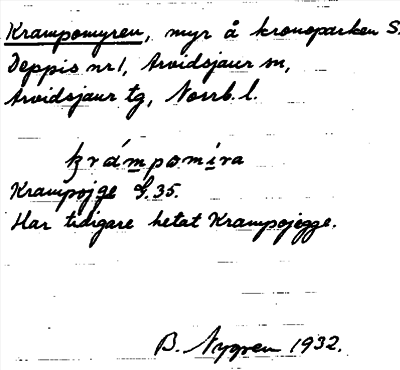 Krampomyren, myr å kronoparken S.
Deppis nr 1, Arvidsjaur sn,
Arvidsjaur tg, Norrb. l.
krámpomi̲ra
Krampojge G. 35.
Har tidigare hetat Krampojegge.
B. Nygren 1932.